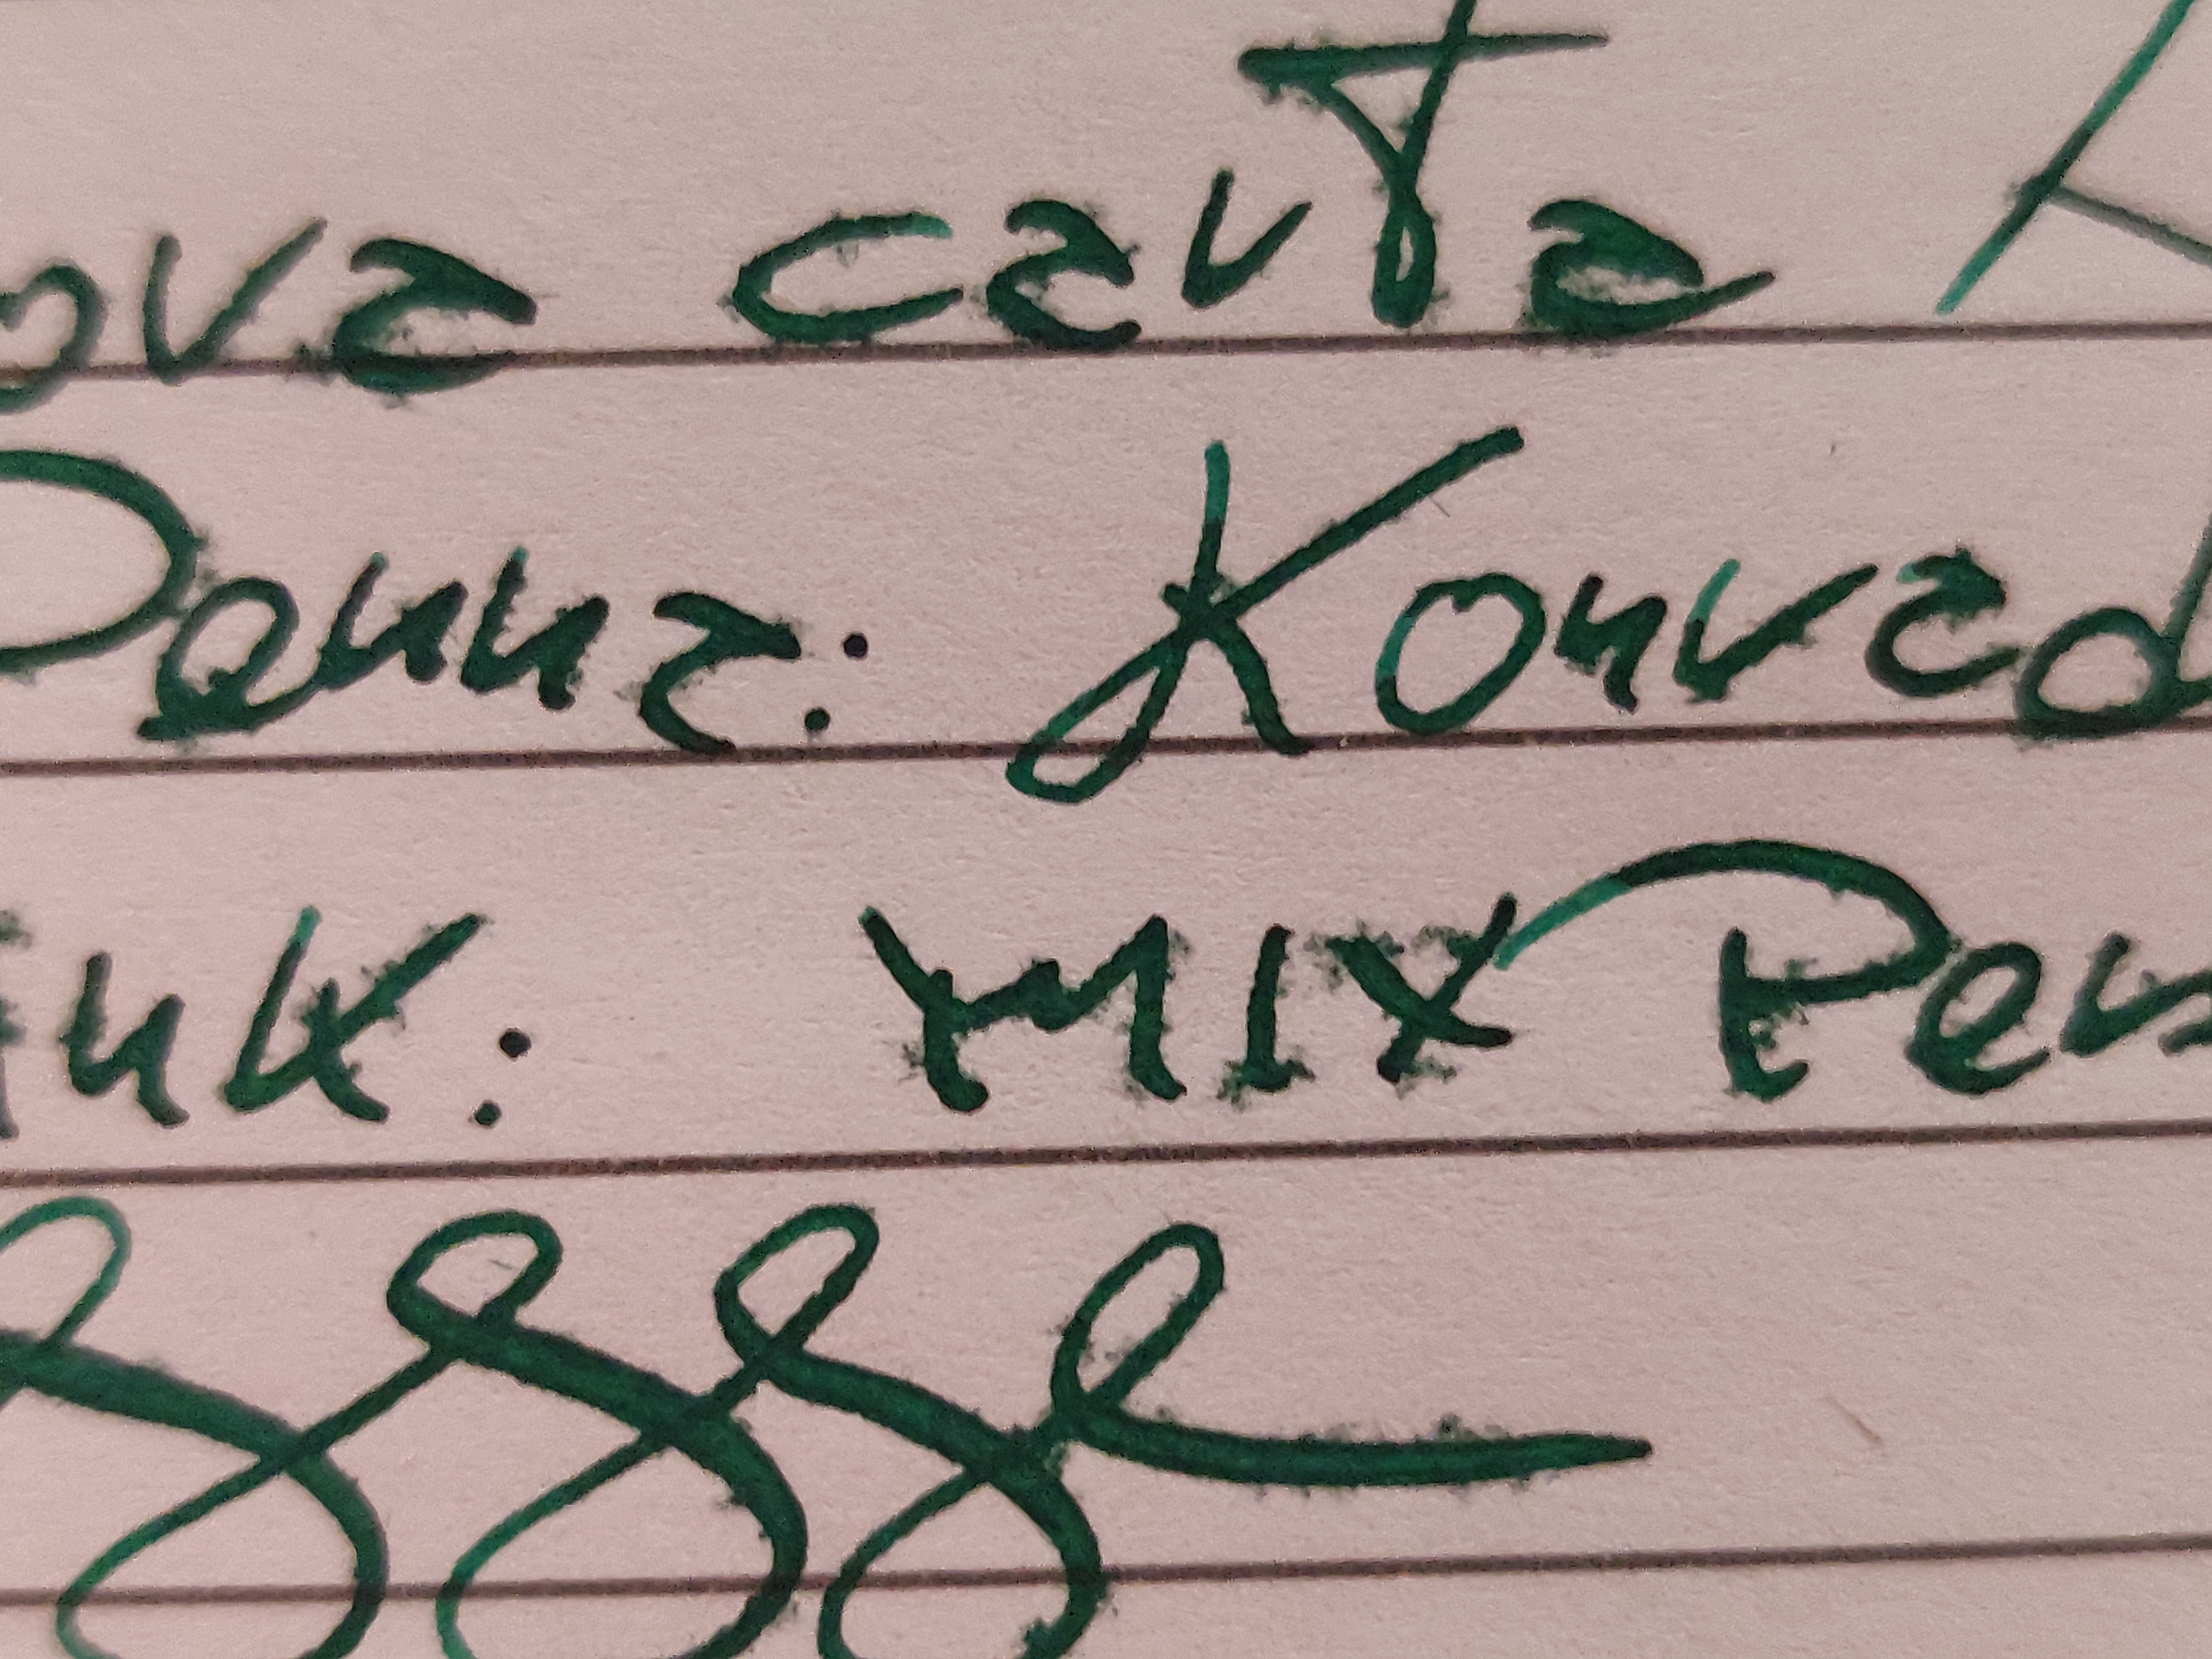 ova carta
Penna: Konrad
ink: MIX Pen